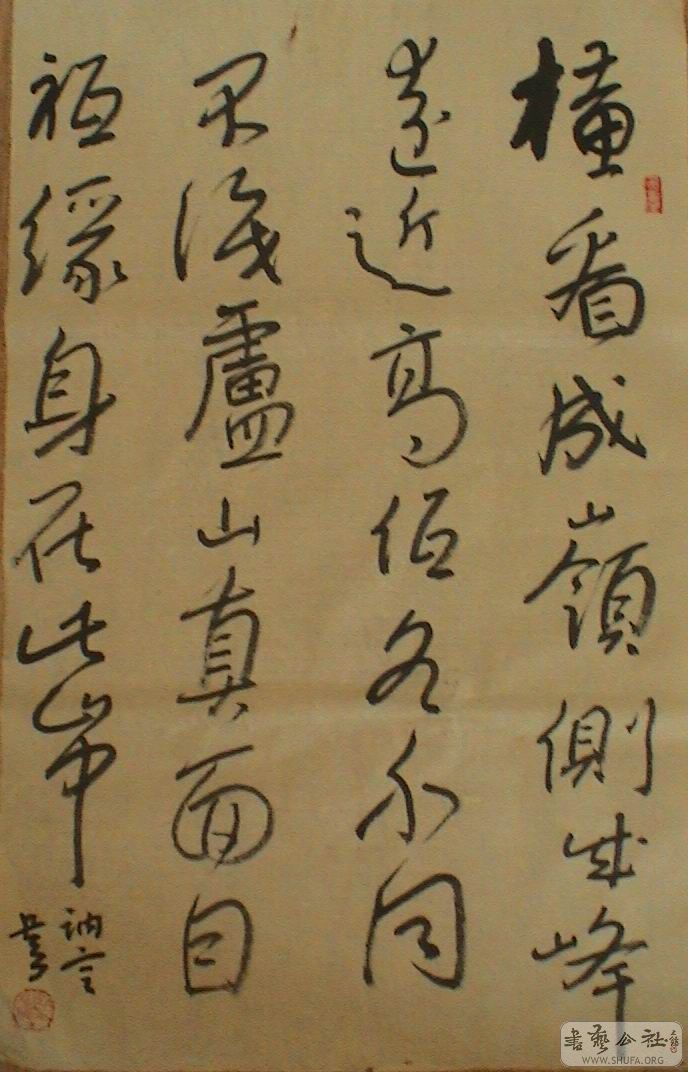 橫看成嶺側成峰
遠近高低各不同
不識盧山真面目
祗緣身在此山中
訥言
書藝公社
WWW.SHUFA.ORG